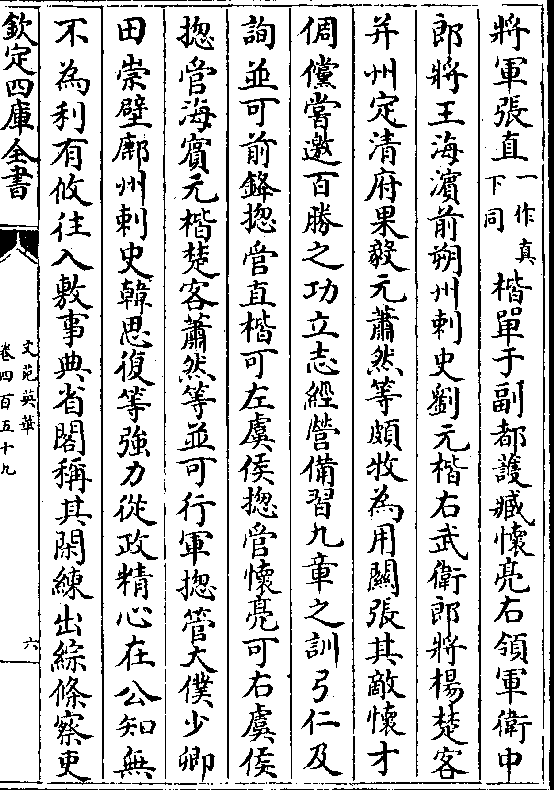 將軍張直一作真下同楷單于副都護臧懷亮右領軍衛中
郎將王海濱前朔州刺史劉元楷右武衛郎將楊楚客
并州定清府果毅元蕭然等頗牧為用關張其敵懷才
倜儻嘗邀百勝之功立志經營備習九章之訓弓仁及
詢並可前鋒揔管直楷可左虞侯揔管懷亮可右虞侯
揔管海賓元楷楚客蕭然等並可行軍揔管大僕少卿
田崇壁鄜州刺史韓思復等強力從政精心在公知無
不為利有攸往入敷事典省閣稱其閑練出綜條察吏
欽定四庫全書
文苑英華
卷四百五十九
六